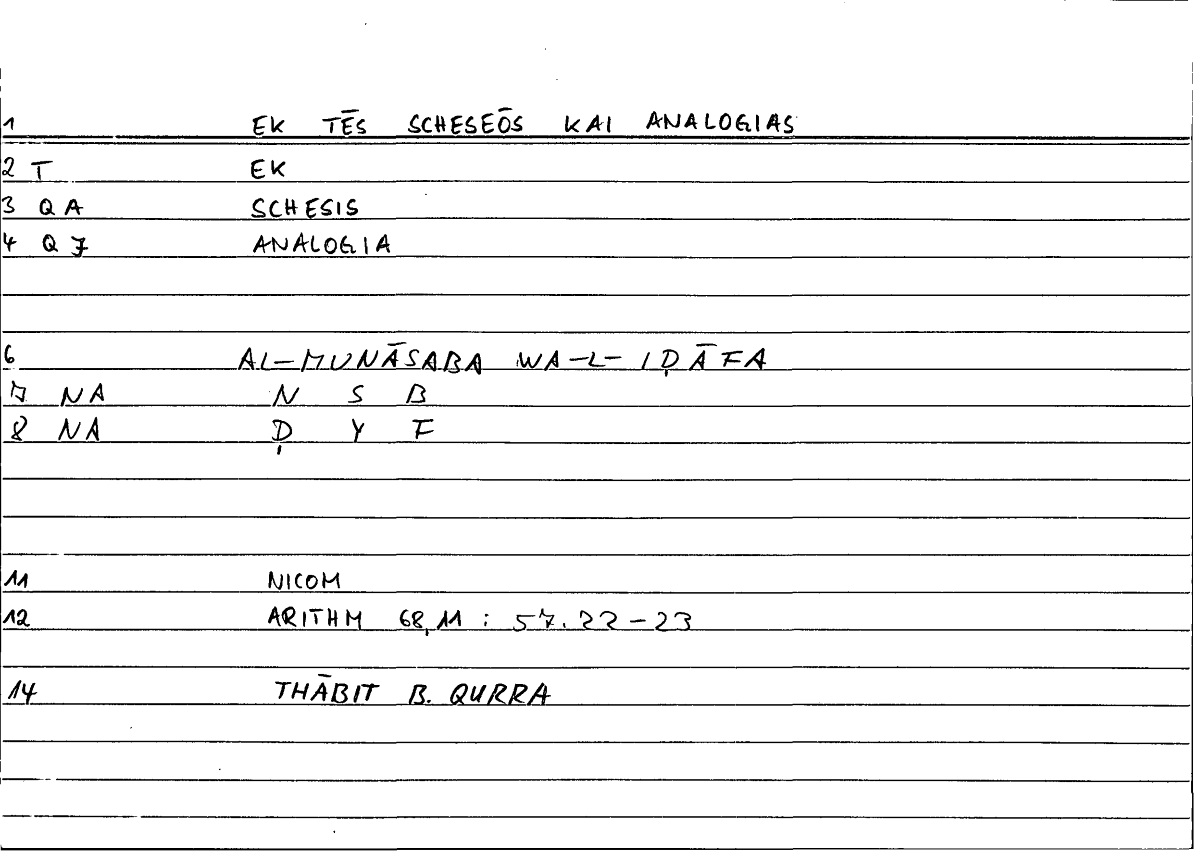 1 EK TĒS SCHESEŌS KAI ANALOGIAS
2 T EK
3 QA SCHESIS
4 QJ ANALOGIA
6 AL-MUNĀSABA WA-L-IḌĀFA
7 NA N S B
8 NA Ḍ Y F
11 NICOM
12 ARITHM 68,11 : 57.22-23
14 THĀBIT B. QURRA